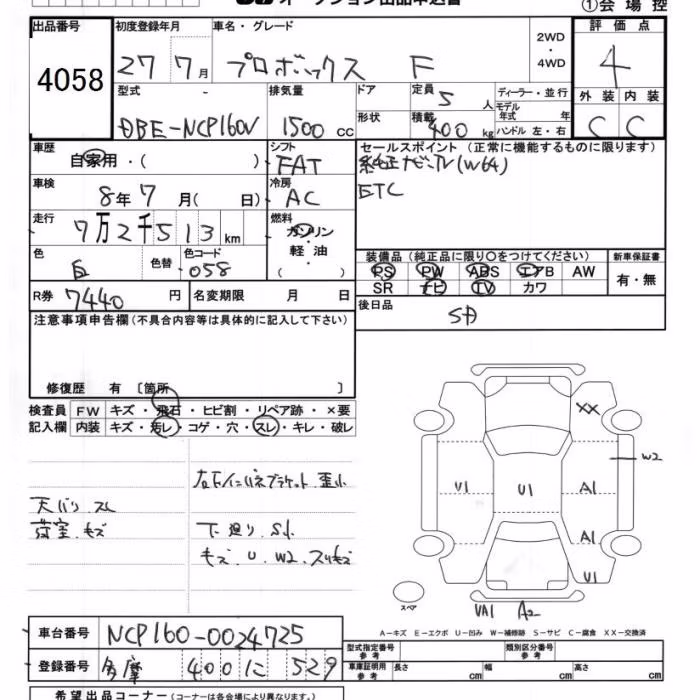 オークション出品申込書
①会場控
出品番号 初度登録年月 車名・グレード 2WD・4WD 評価点
4058 27 7月 プロボックス F 4
型式 - 排気量 ドア 定員 5人 ディーラー・並行 外装 内装
モデル年式 年
DBE-NCP160V 1500cc 形状 積載 400kg ハンドル 左・右 C C
車歴 シフト セールスポイント (正常に機能するものに限ります)
自家用・( ) FAT 純正ナビ・TV(W64)
車検 冷房 ETC
8年7月( 日) AC
走行 燃料
7万2千513km ガソリン
軽油
( )
色 色替 色コード 装備品 (純正品に限り○をつけてください) 新車保証書
白 058 PS PW ABS エアB AW 有・無
SR ナビ TV カワ
R券 7440円 名変期限 月 日 後日品
SD
注意事項申告欄(不具合内容等は具体的に記入して下さい)
修復歴 有 〔箇所 〕
検査員 FW キズ・飛石・ヒビ割・リペア跡・×要
記入欄 内装 キズ・汚レ・コゲ・穴・スレ・キレ・破レ
天バリ スレ
荷室 キズ
下廻り S小
キズ、U、W2、スリキズ
XX
W2
U1 U1 A1
A1
U1
スペア
UA1 A2
A-キズ E-エクボ U-凹み W-補修跡 S-サビ C-腐食 XX-交換済
車台番号 NCP160-0024725
型式指定番号 参考 類別区分番号 参考
登録番号 多摩 400 に 529
車庫証明用 参考 長さ cm 幅 cm 高さ cm
希望出品コーナー(コーナーは各会場により異なります。)